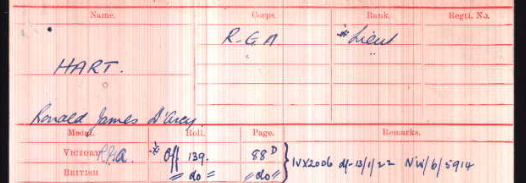 Name. Corps. Rank. Regtl. No.
R.G.A *Lieut
HART.
Ronald James D'Arcy
Medal. Roll. Page. Remarks.
VICTORY R.G.A. * Off 139. 88D IVX2006 d/-13/1/22 NW/6/5914
BRITISH " do " " do "